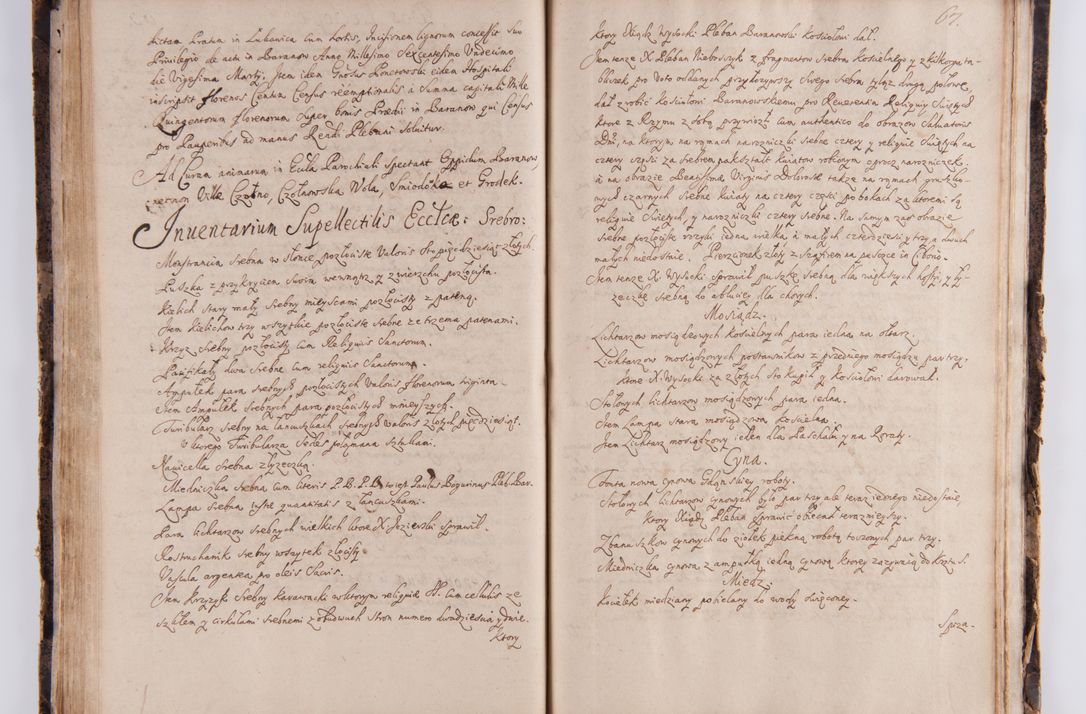 dictam Pratum in Lukawica Cum hortis, Incisionem lignorum concessit suo
Privilegio de data in Baranow Anno Millesimo Sexcentesimo Undecimo
die Vigesima Marty. Item idem Gnosus Ponetowski eidem Hospitali
inscripsit florenos Centum Census reemptionalis à Summa capitali Mille
Quingentorum florenorum super bonis Praedii in Baranow qui Census
pro Pauperibus ad manus Rendi Plebani Solvitur.
Ad Curam animarum in Eccla Parochiali spectant Oppidum Baranow,
necnon Villae Czołno, Czołnowska Wola, Śmiodołka et Grodek.
Inventarium Supellectilis Ecclae: Srebro:
Monstrancia Srebna w słonce pozłocista Valoris sto pięcdziesiąt złotych.
Puszka z przykryciem swoim wewnątrz y zwierzchu pozłocista.
Kielich stary mały Srebny mieyscami pozłocisty z pateną.
Item Kielichow trzy wszytkie pozłociste srebne ze trzema patenami.
Krzyz Srebny pozłocisty Cum Reliquiis Sanctorum.
Pacifikały dwa Srebne Cum reliquiis Sanctorum.
Ampułek para Srebnych pozłocistych Valoris florenorum triginta.
Item Ampułek Srebnych para pozłocistych mnieyszych.
Turibularz Srebny na łancuszkach Srebnych Valoris złotych pięcdziesiąt.
u ktorego Turibularza Sedes połamana sztukami.
Navicella Srebna z łyzeczką.
Miedniczka Srebna Cum literis P. B. P. B. to iest Paulus Bogurinus Pleb: Bar.
Lampa Srebna iustae quantitatis z łancuszkami.
Para lichtarzow Srebnych wielkich ktore X. Jezierski sprawił.
Rostruchanik srebny wszytek złocisty.
Vascula argentea pro oleis Sacris.
Item Krzyzyk Srebny Karawacki w ktorym religuiae SS. Cum cellulis ze
szkłem y cirkułami Srebnemi z obudwuch stron numero dwadziescia y dwie.
ktory
67.
ktory Xiądz Wysocki Pleban Baranowski Kosciołowi dał.
Item tenze X Pleban Nieboszczyk z fragmentow Srebra Kościelnego y z kilkorga ta-
bliczek pro Voto oddanych przydozywszy swego Srebra tylaz drugą połowę,
dał zrobić Kosciołowi Baranowskiemu pro Reverentia Religuiy Swiętych
ktore z Rzymu z sobą przywiozł Cum authentico do obrazow Salvatoris
Dni, na ktorym na ramach narozniczki srebne cztery y religuie Swiętych na
cztery części ze srebrem na kształt kwiatow robionym oprocz narozniczek.
a na obrazie Beatissimae Virginis Dolorosae takze na ramach gruszko-
wych czarnych srebne kwiaty na cztery części po bokach za ktoremi są
religuie Swiętych, y narozniczki cztery srebne. Na samym zas obrazie
srebne pozłociste wszytko iedna wielka a małych czterdziesci y trzy a dwuch
małych niedostaie. Pierzcionek złoty z szafirem na palcu in Ciborio.
Item tenze X Wysocki sprawił puszkę srebną dla większych hostyi, y ły-
zeczkę srebną do abluciey dla chorych.
Mosiądz.
Lichtarzow mosiądzowych koscielnych para iedna na ołtarz.
Lichtarzow mosiądzowych postawnikow z przedniego mosiądzu par trzy.
Ktore X. Wysocki za złotych sto kupił y Kosciołowi darował.
Stołowych lichtarzow mosiądzowych para iedna.
Item Lampa stara mosiądzowa koscielna.
Item Lichtarz mosiądzowy ieden dla Paschału y na Roraty.
Cyna.
Fonta nowa cynowa Gdańskiey roboty.
Stołowych lichtarzow cynowych było par trzy ale teraz iednego niedostaie,
ktory Xiądz Pleban sprawić obiecał terazniejszy.
Zbanuszkow cynowych do ziołek piękną robotą toczonych par trzy.
Miedniczka cynowa z ampułką iedną cynową ktorey zazywaią do Krztu S.
Miedz.
Kociełek miedziany pobielany do wody Swięconey.
Sprza-